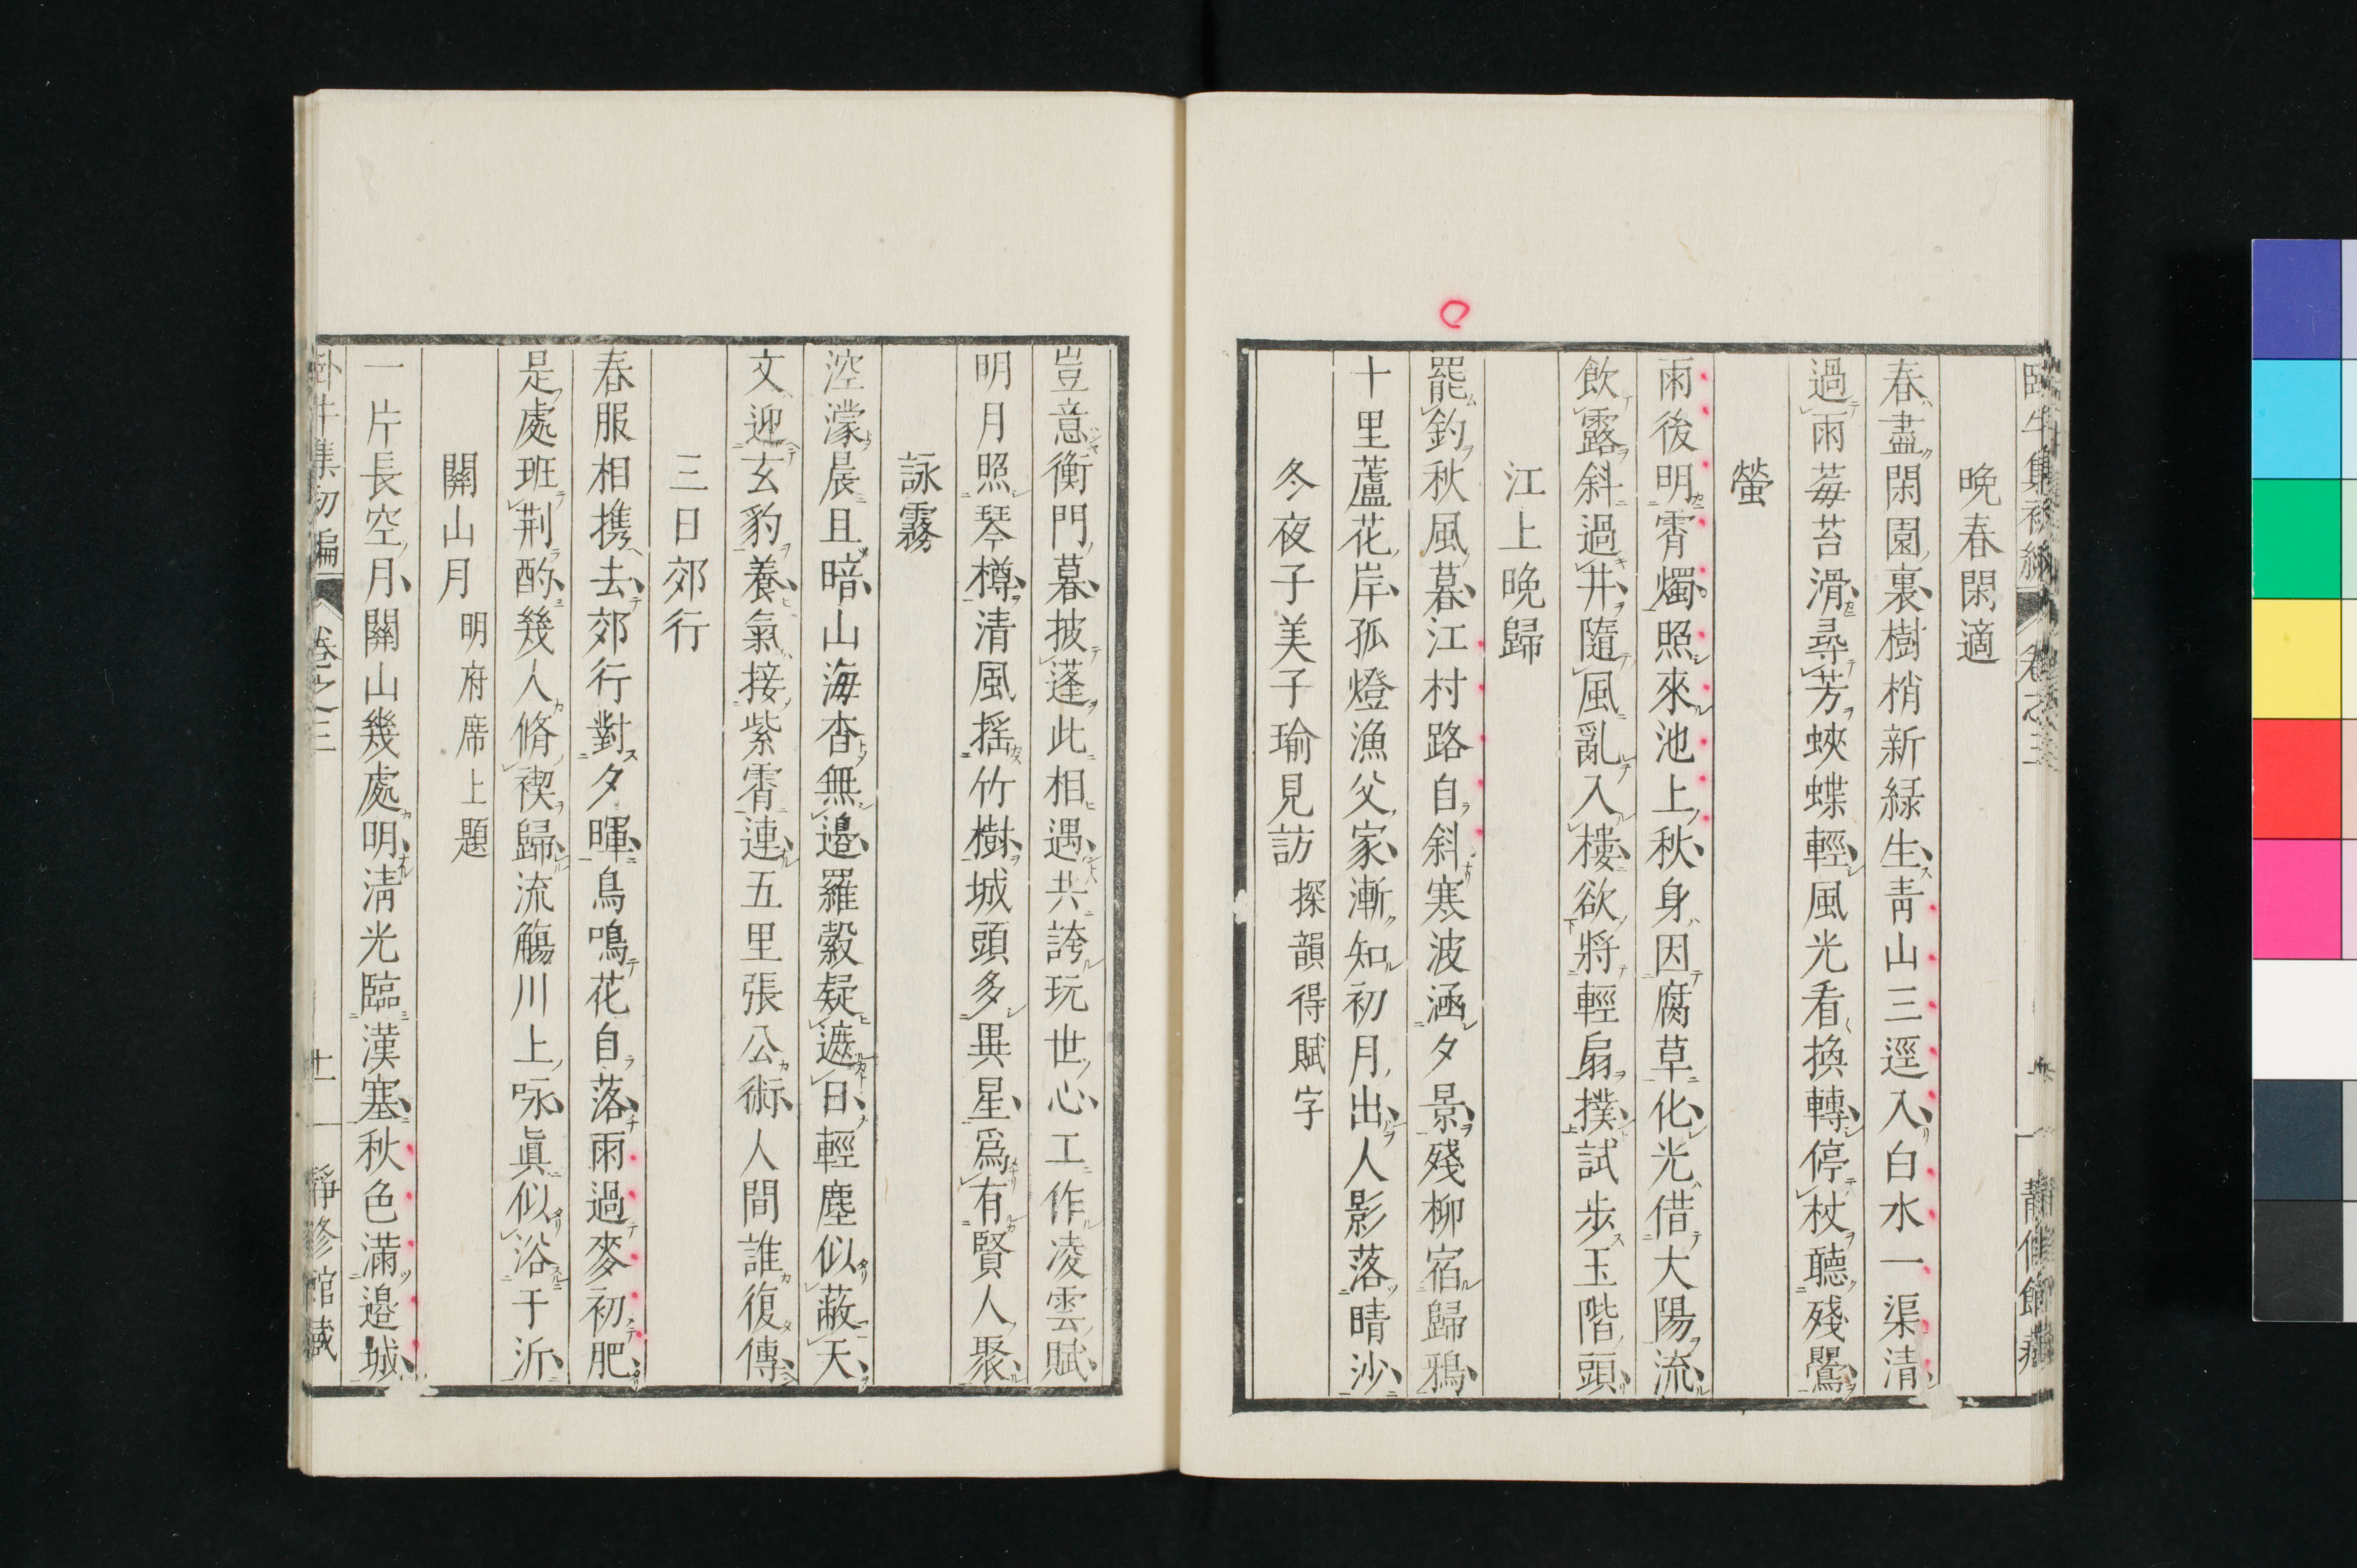 晩春閑適
春盡閑園裏樹梢新緑生青山三逕入白水一渠清
過雨莓苔滑尋芳蛺蝶輕風光看換轉停杖聽殘鶯
螢
雨後明霄燭照來池上秋身因腐草化光借大陽流
飲露斜過井隨風亂入樓欲將輕扇撲試步玉階頭
江上晩歸
罷釣秋風暮江村路自斜寒波涵夕景殘柳宿歸鴉
十里蘆花岸孤燈漁父家漸知初月出人影落晴沙
冬夜子美子瑜見訪 探韻得賦字
豈意衡門暮披蓬此相遇共誇玩世心工作凌雲賦
明月照琴樽清風搖竹樹城頭多異星爲有賢人聚
詠霧
涳濛晨且暗山海杳無邊羅縠疑遮日輕塵似蔽天
文迎玄豹養氣接紫霄連五里張公術人間誰復傳
三日郊行
春服相携去郊行對夕暉鳥鳴花自落雨過麥初肥
是處班荆酌幾人脩禊歸流觴川上咏眞似浴于沂
關山月 明府席上題
一片長空月關山幾處明清光臨漢塞秋色滿邊城
臥牛集初編 卷之三 十一 靜修館藏